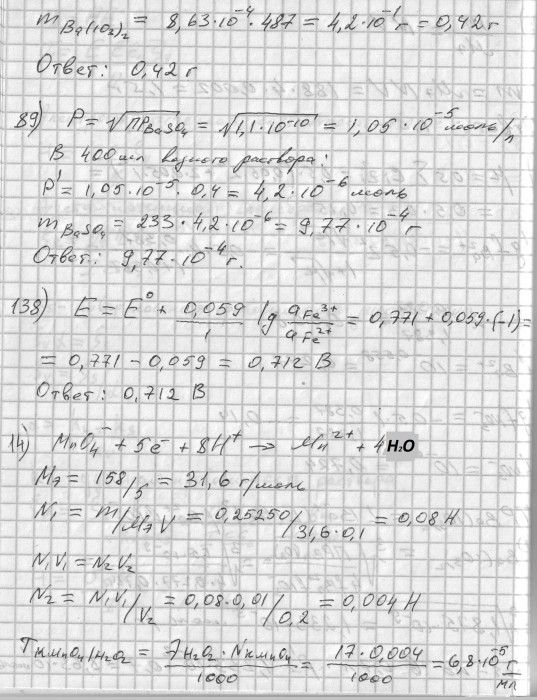 m Ba(IO₃)₂ = 8,63·10⁻⁴·487 = 4,2·10⁻¹ г = 0,42 г
Ответ: 0,42 г
89) P = √ПР BaSO₄ = √1,1·10⁻¹⁰ = 1,05·10⁻⁵ моль/л
В 400 мл водного раствора:
P' = 1,05·10⁻⁵·0,4 = 4,2·10⁻⁶ моль
m BaSO₄ = 233·4,2·10⁻⁶ = 9,77·10⁻⁴ г
Ответ: 9,77·10⁻⁴ г.
138) E = E⁰ + 0,059/1 lg a Fe³⁺/a Fe²⁺ = 0,771 + 0,059·(-1) =
= 0,771 - 0,059 = 0,712 В
Ответ: 0,712 В
14) MnO₄⁻ + 5e⁻ + 8H⁺ → Mn²⁺ + 4H₂O
Mэ = 158/5 = 31,6 г/моль
N₁ = m/Mэ V = 0,25250/31,6·0,1 = 0,08 Н
N₁V₁ = N₂V₂
N₂ = N₁V₁/V₂ = 0,08·0,01/0,2 = 0,004 Н
T KMnO₄/H₂O₂ = Э H₂O₂ · N KMnO₄/1000 = 17·0,004/1000 = 6,8·10⁻⁵ г/мл